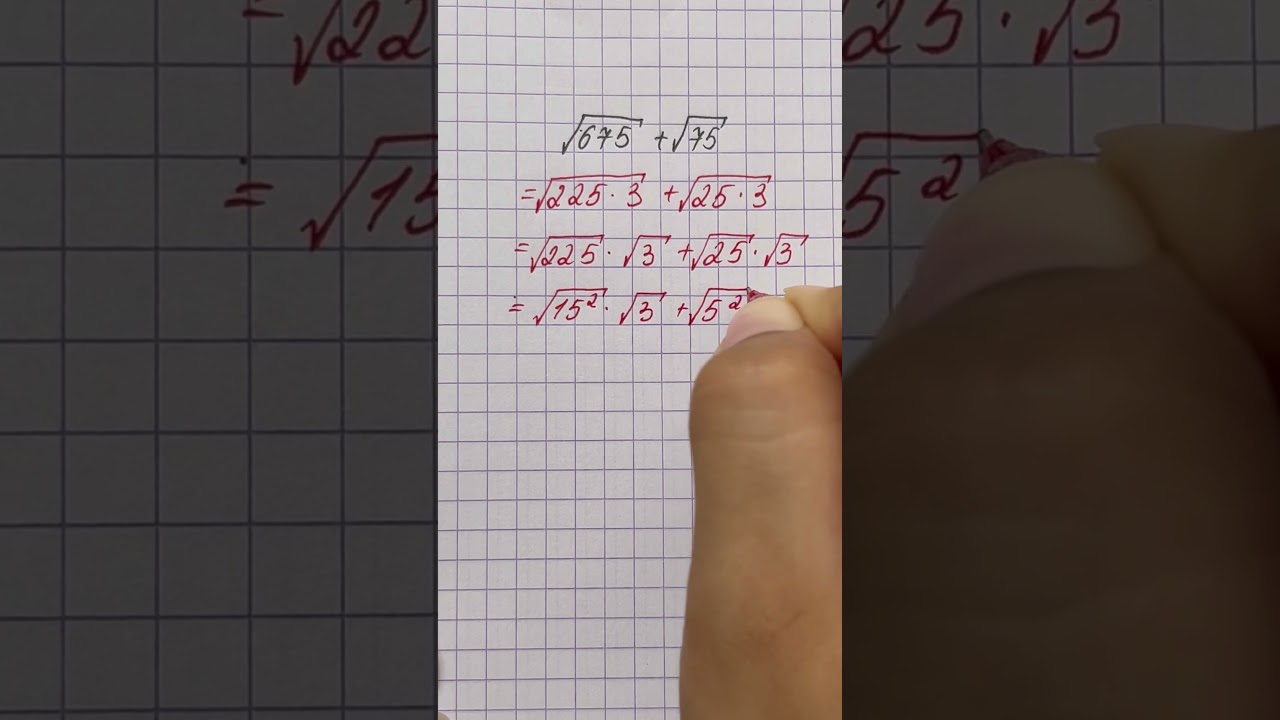 √675 + √75
= √225 · 3 + √25 · 3
= √225 · √3 + √25 · √3
= √15² · √3 + √5²